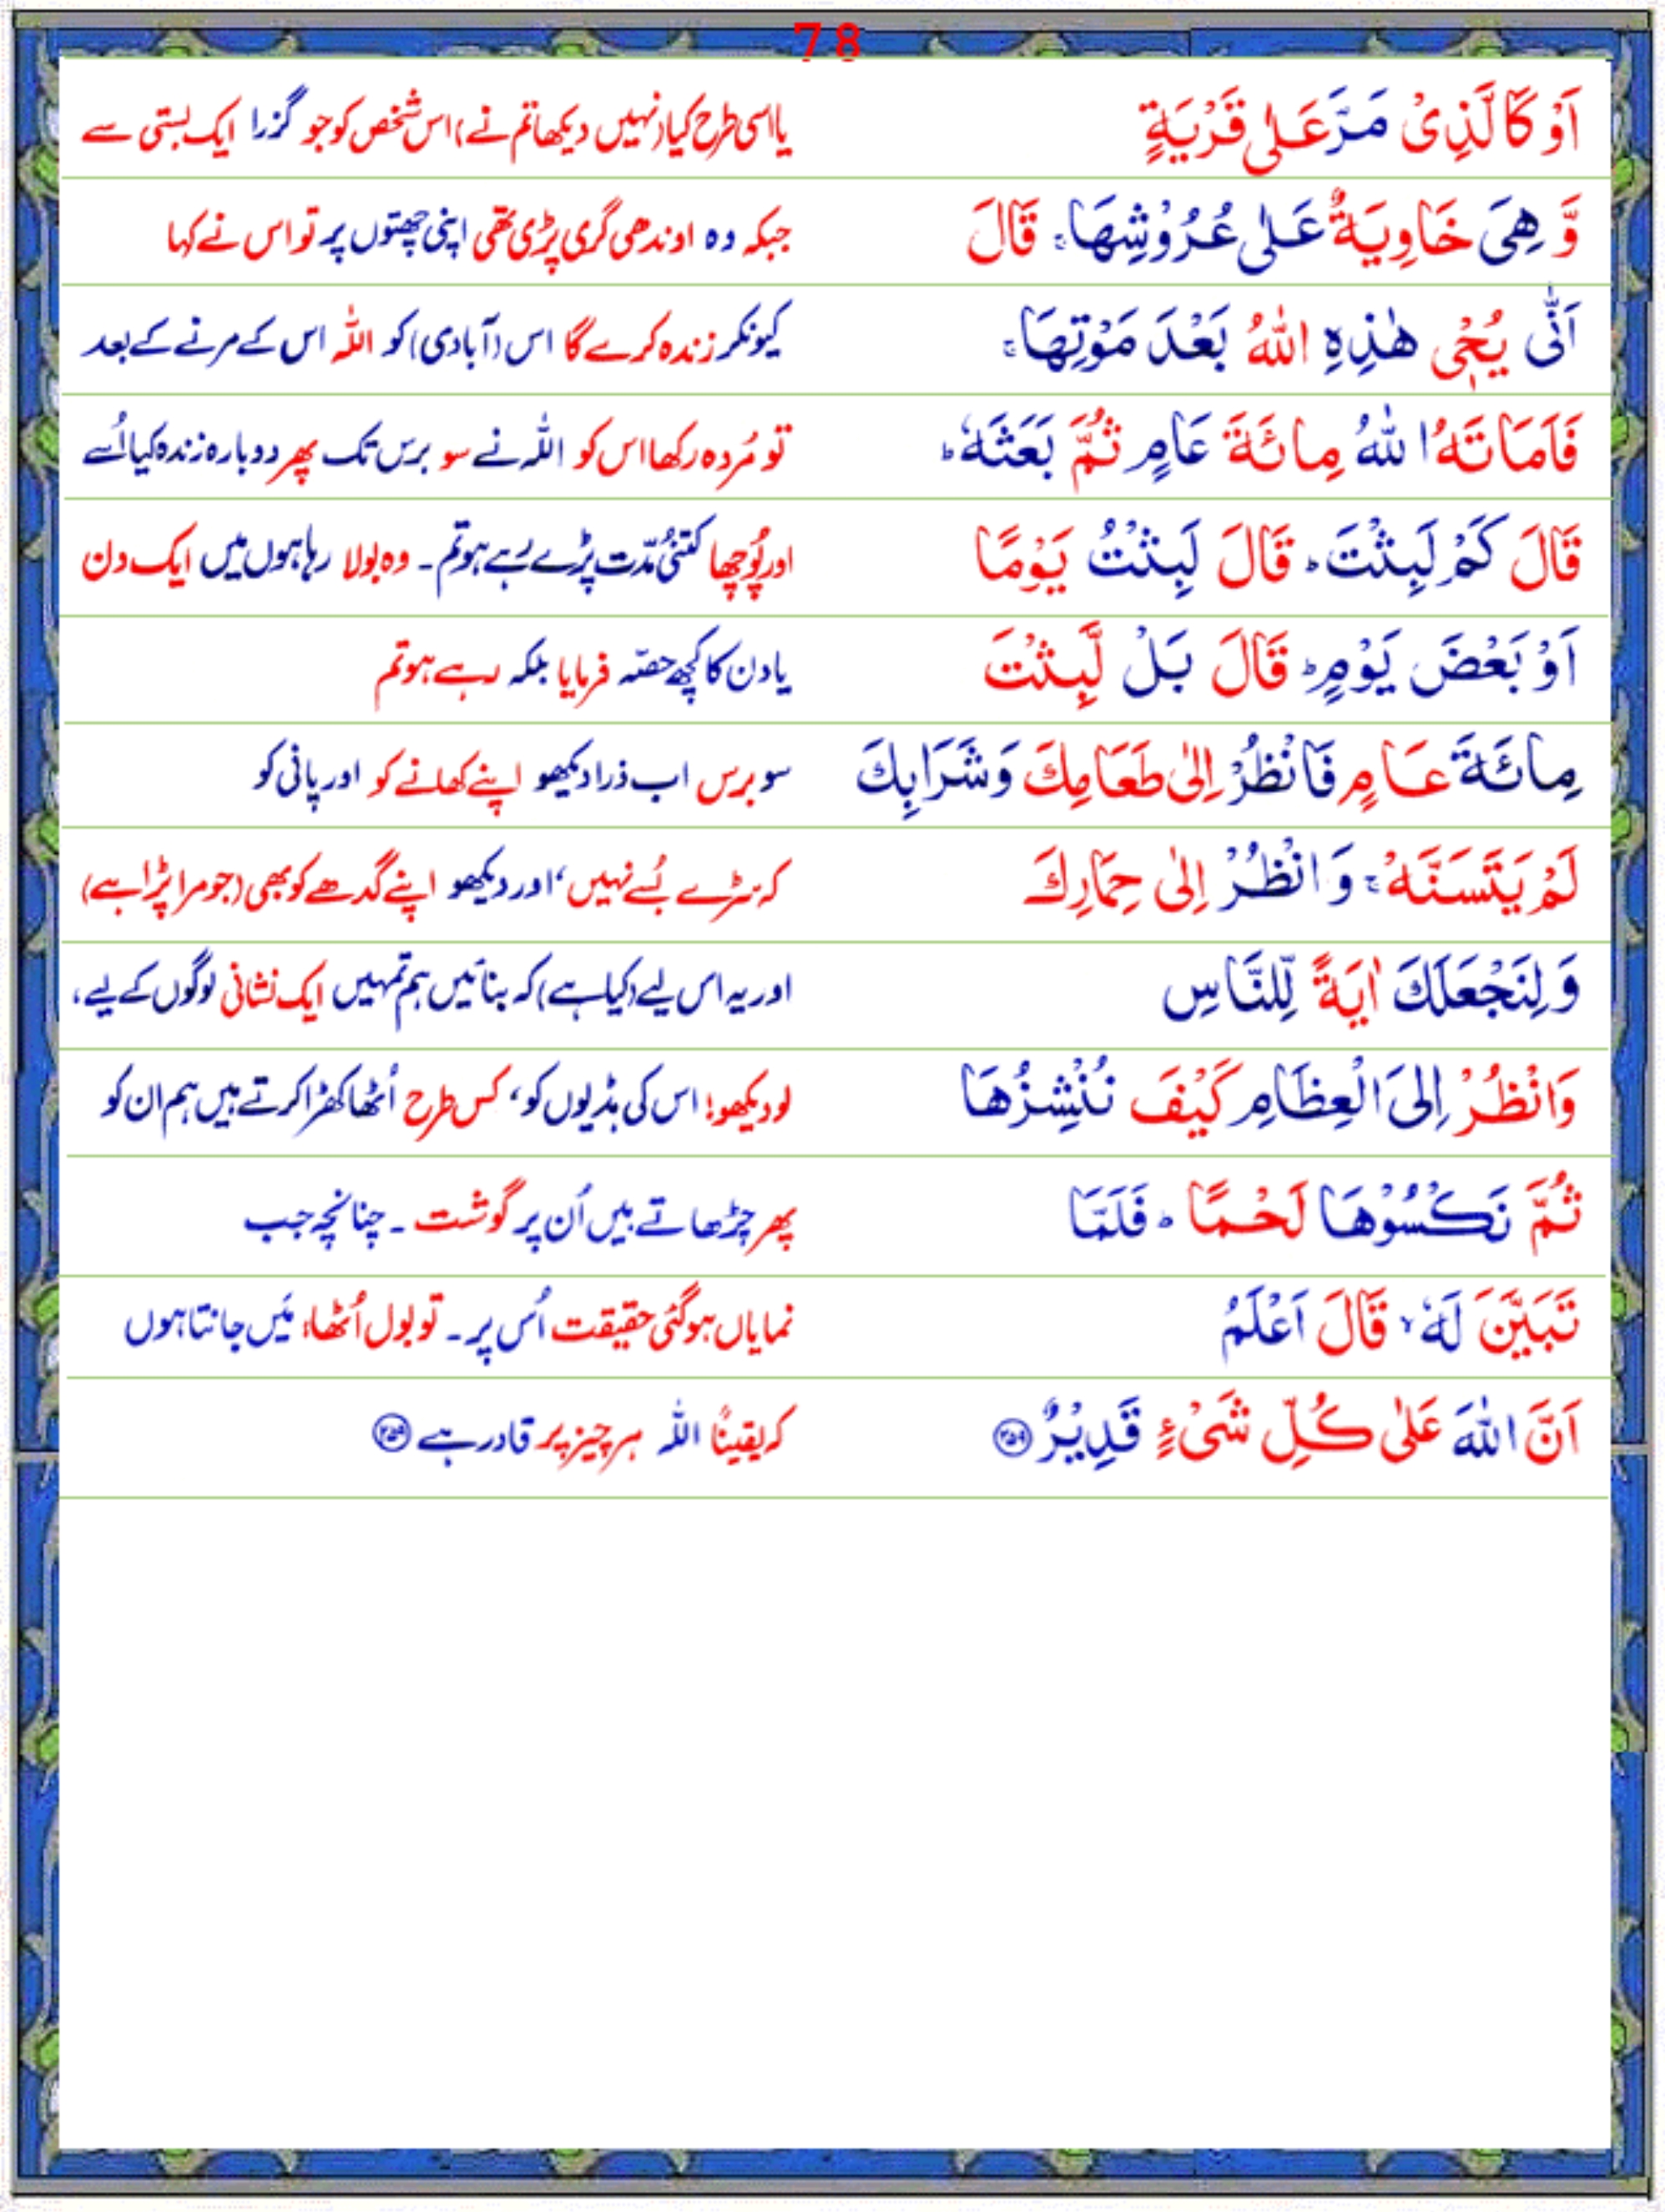 78
اَوْ كَالَّذِىْ مَرَّ عَلٰى قَرْيَةٍ یا اسی طرح کیا (نہیں دیکھا تم نے) اس شخص کو جو گزرا ایک بستی سے
وَّ هِىَ خَاوِيَةٌ عَلٰى عُرُوْشِهَا ۚ قَالَ جبکہ وہ اوندھی گری پڑی تھی اپنی چھتوں پر تو اس نے کہا
اَنّٰى يُحْىٖ هٰذِهِ اللّٰهُ بَعْدَ مَوْتِهَا ۚ کیونکر زندہ کرے گا اس (آبادی) کو اللہ اس کے مرنے کے بعد
فَاَمَاتَهُ اللّٰهُ مِائَةَ عَامٍ ثُمَّ بَعَثَهٗ ؕ تو مُردہ رکھا اس کو اللہ نے سو برس تک پھر دوبارہ زندہ کیا اُسے
قَالَ كَمْ لَبِثْتَ ؕ قَالَ لَبِثْتُ يَوْمًا اور پُوچھا کتنی مُدّت پڑے رہے ہو تم۔ وہ بولا رہا ہوں میں ایک دن
اَوْ بَعْضَ يَوْمٍ ؕ قَالَ بَلْ لَّبِثْتَ یا دن کا کچھ حصّہ فرمایا بلکہ رہے ہو تم
مِائَةَ عَامٍ فَانْظُرْ اِلٰى طَعَامِكَ وَشَرَابِكَ سو برس اب ذرا دیکھو اپنے کھانے کو اور پانی کو
لَمْ يَتَسَنَّهْ ۚ وَانْظُرْ اِلٰى حِمَارِكَ کہ سڑے بُسے نہیں، اور دیکھو اپنے گدھے کو بھی (جو مرا پڑا ہے)
وَلِنَجْعَلَكَ اٰيَةً لِّلنَّاسِ اور یہ اس لیے (کیا ہے) کہ بنائیں ہم تمہیں ایک نشانی لوگوں کے لیے،
وَانْظُرْ اِلَى الْعِظَامِ كَيْفَ نُنْشِزُهَا لو دیکھو! اس کی ہڈیوں کو، کس طرح اُٹھا کھڑا کرتے ہیں ہم ان کو
ثُمَّ نَكْسُوْهَا لَحْمًا ؕ فَلَمَّا پھر چڑھاتے ہیں اُن پر گوشت۔ چنانچہ جب
تَبَيَّنَ لَهٗ ۙ قَالَ اَعْلَمُ نمایاں ہوگئی حقیقت اُس پر۔ تو بول اُٹھا، مَیں جانتا ہوں
اَنَّ اللّٰهَ عَلٰى كُلِّ شَىْءٍ قَدِيْرٌ ۝۲۵۹ کہ یقینًا اللہ ہر چیز پر قادر ہے ۝۲۵۹